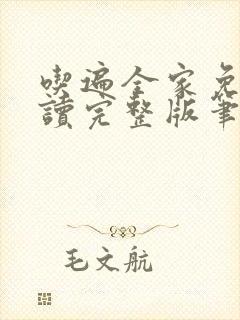 喫遍全家免
讀完整版筆
毛文航